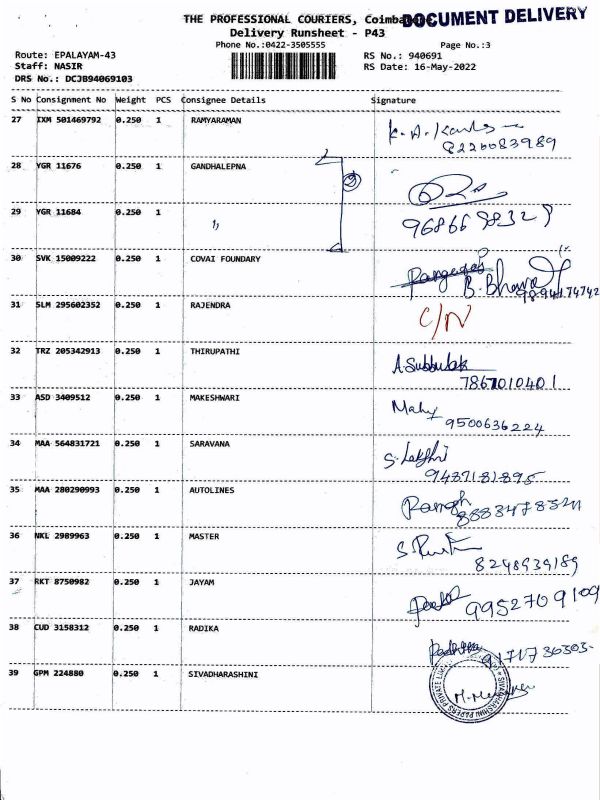 THE PROFESSIONAL COURIERS,
DOCUMENT DELIVERY
Delivery Runsheet - P43
Phone No.:0422-3505555 Page No.:3
Route: EPALAYAM-43 RS No.: 940691
Staff: NASIR RS Date: 16-May-2022
DRS No.: DCJB94069103
S No Consignment No Weight PCS Consignee Details Signature
27 IXM 501469792 0.250 1 RAMYARAMAN
8220083989
28 YGR 11676 0.250 1 GANDHALEPNA
2
29 YGR 11684 0.250 1
30 SVK 15009222 0.250 1 COVAI FOUNDARY
B. Bhava
9894174742
31 SLM 295602352 0.250 1 RAJENDRA C/N
32 TRZ 205342913 0.250 1 THIRUPATHI
7867010401
33 ASD 3409512 0.250 1 MAKESHWARI Mahy
9500636224
34 MAA 564831721 0.250 1 SARAVANA
9487181895
35 MAA 280290993 0.250 1 AUTOLINES
36 NKL 2989963 0.250 1 MASTER
8248939189
37 RKT 8750982 0.250 1 JAYAM
9952709109
38 CUD 3158312 0.250 1 RADIKA
9171736303
39 GPM 224880 0.250 1 SIVADHARASHINI